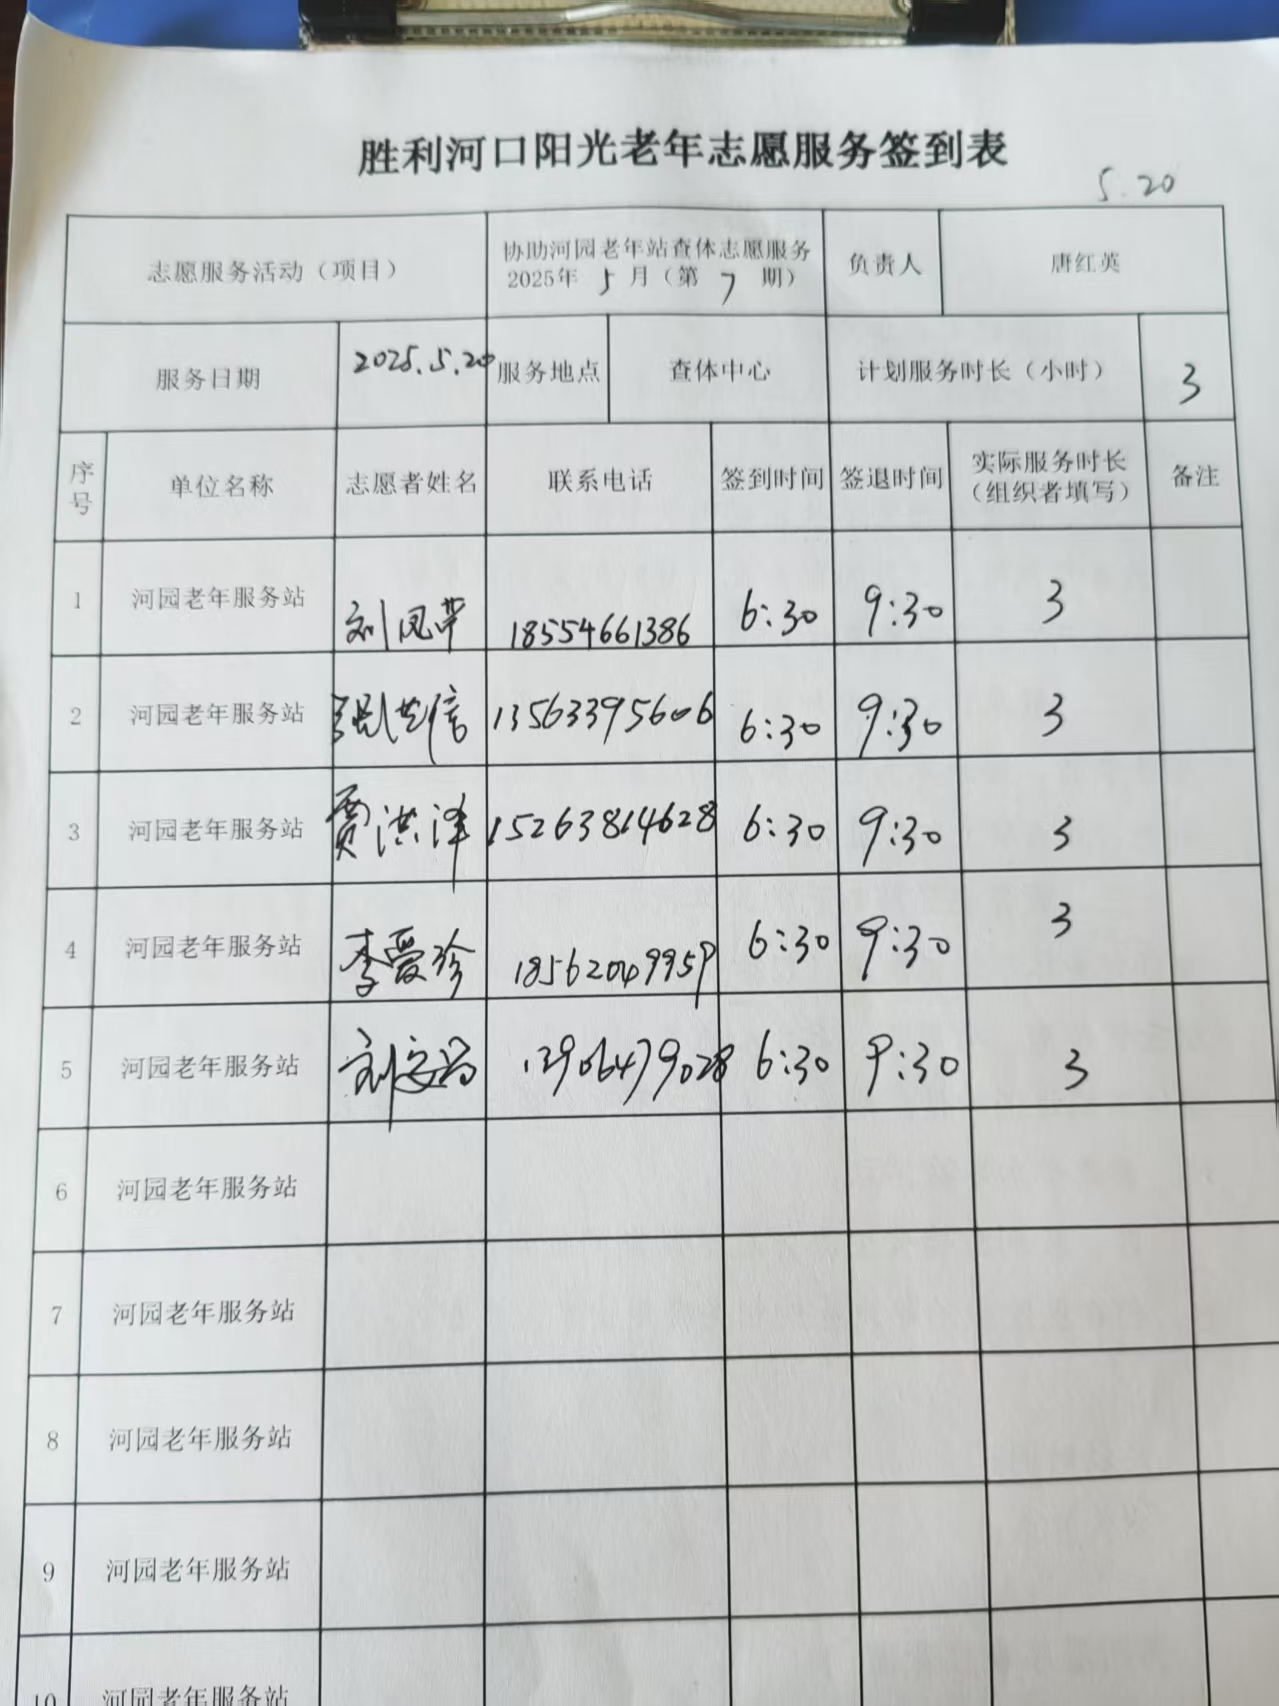 胜利河口阳光老年志愿服务签到表
5.20
志愿服务活动（项目） 协助河园老年站查体志愿服务 2025年 5 月（第 7 期） 负责人 唐红英
服务日期 2025.5.20 服务地点 查体中心 计划服务时长（小时） 3
序号 单位名称 志愿者姓名 联系电话 签到时间 签退时间 实际服务时长（组织者填写） 备注
1 河园老年服务站 刘凤芹 18554661386 6:30 9:30 3
2 河园老年服务站 13563395606 6:30 9:30 3
3 河园老年服务站 贾洪泽 15263814628 6:30 9:30 3
4 河园老年服务站 李爱珍 18562049959 6:30 9:30 3
5 河园老年服务站 刘 13906479028 6:30 9:30 3
6 河园老年服务站
7 河园老年服务站
8 河园老年服务站
9 河园老年服务站
10 河园老年服务站